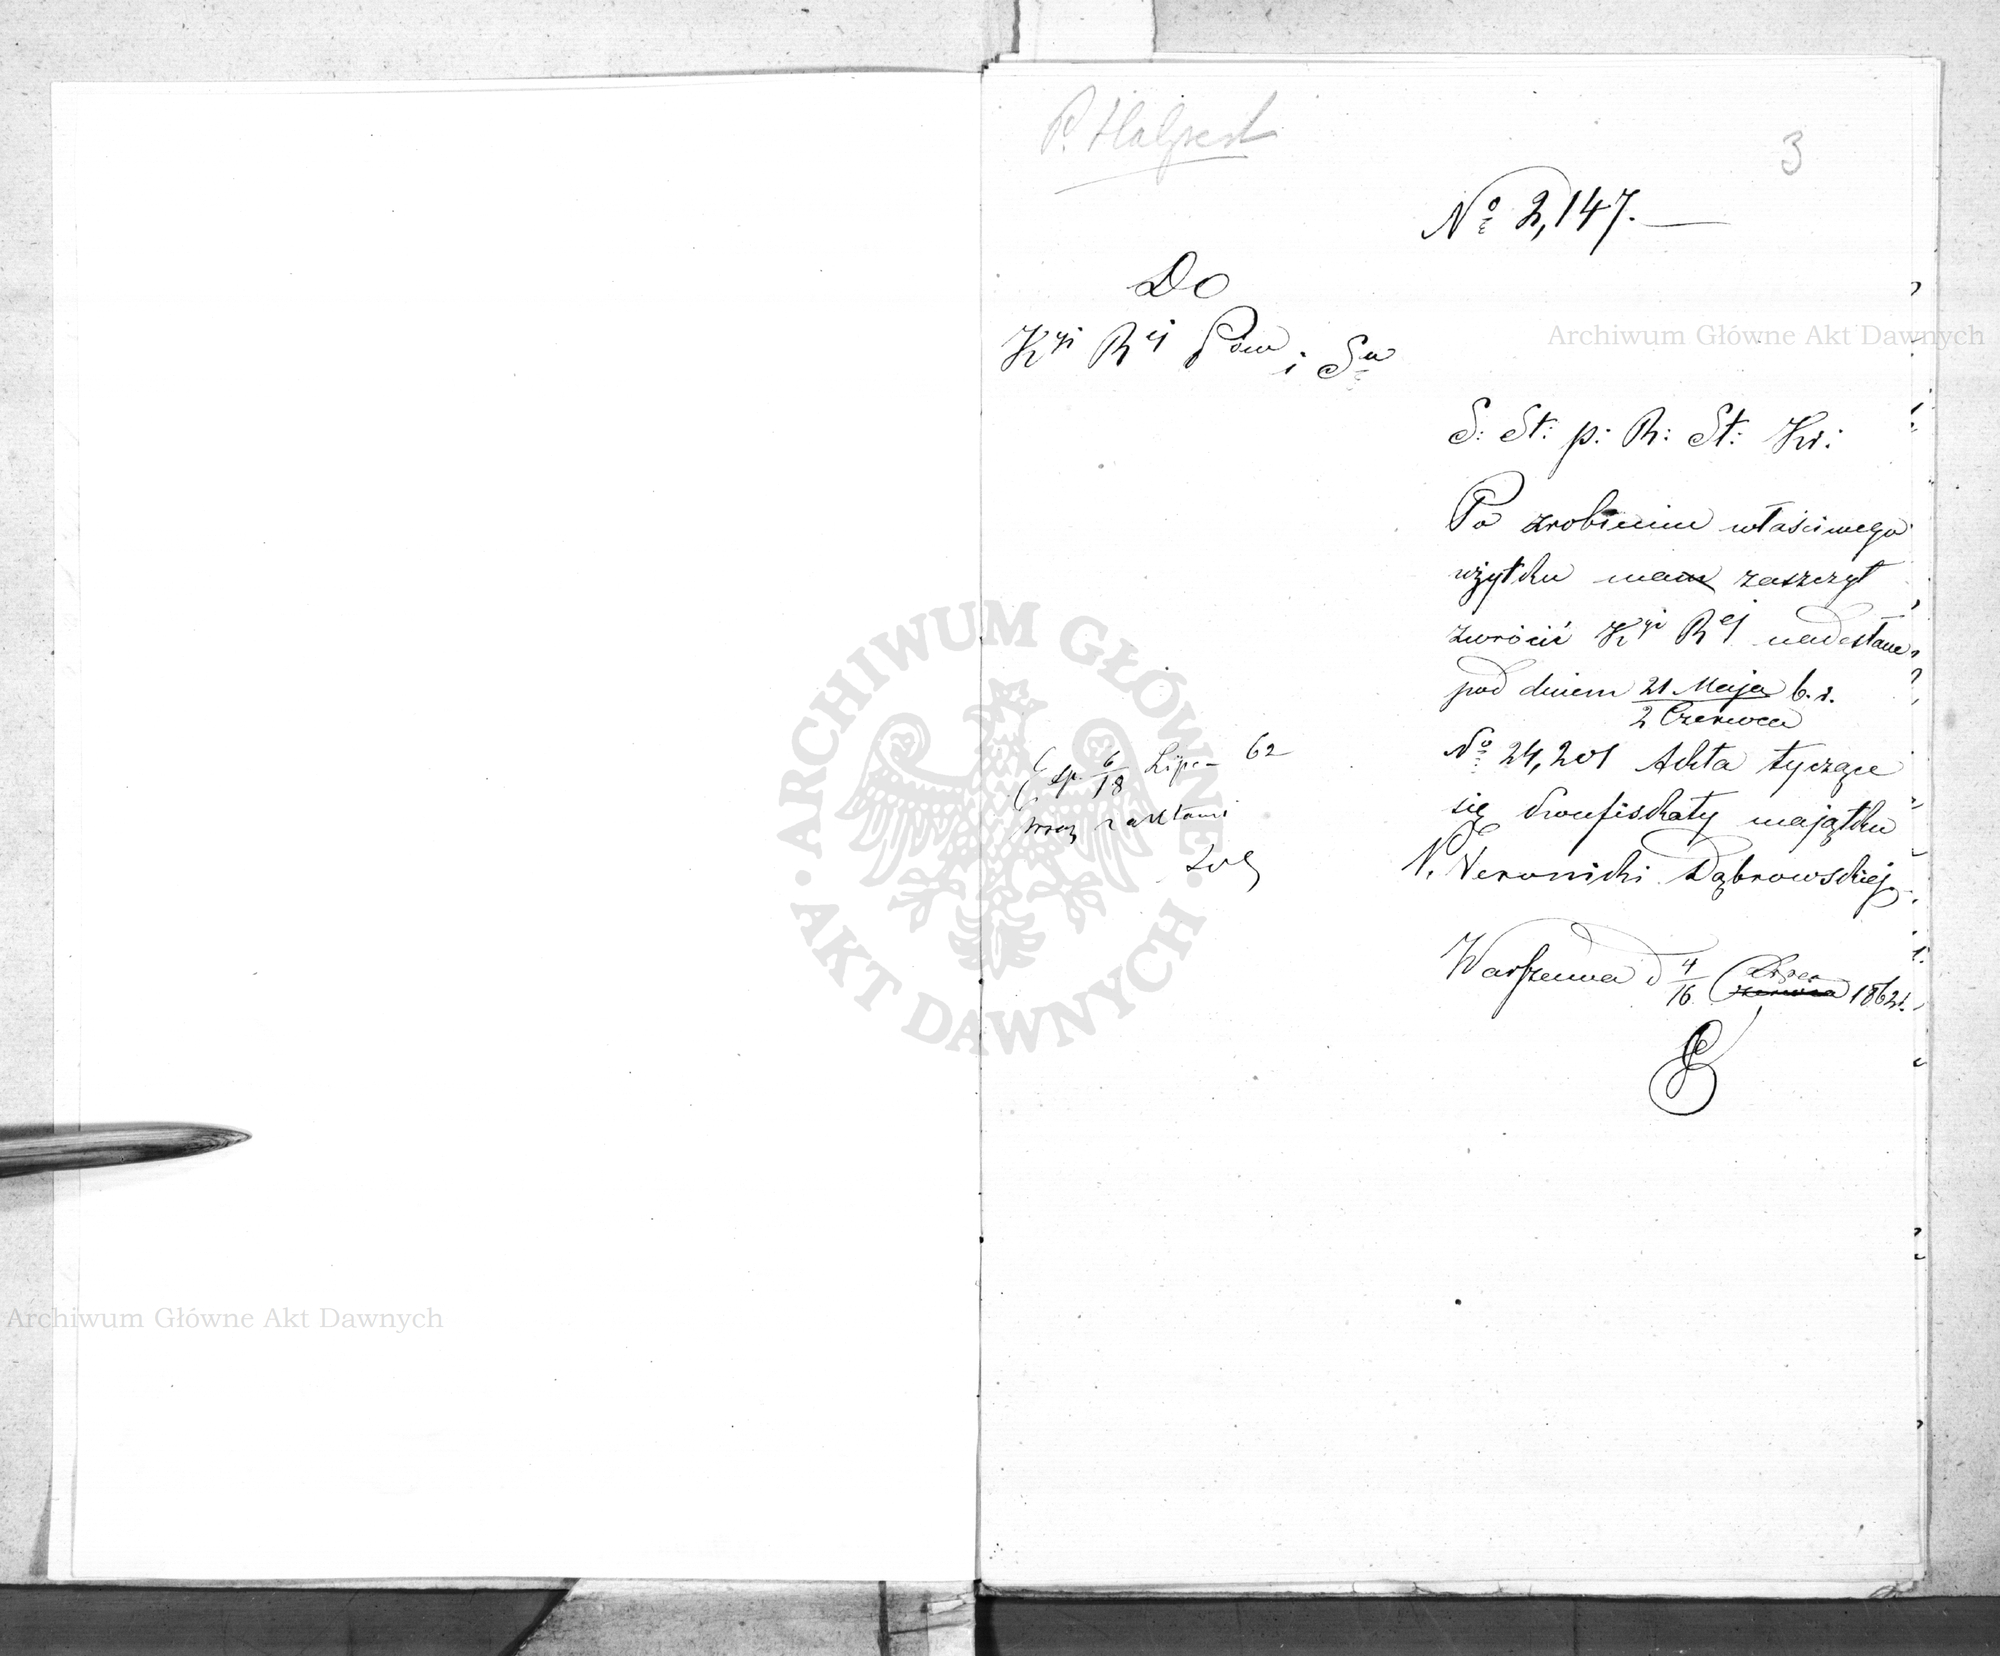 P. Halpert
3
№ 2,147.
Do
Kyi Rej Pow i Su
S: St: p: R: St: Kr:
Po zrobieniu właściwego
użytku mam zaszczyt
zwrócić Kyi Rej nadesłane
pod dniem 21 Maja b. r.
2 Czerwca
№ 24,201 Akta tyczące
się konfiskaty majątku
N. Weroniki Dąbrowskiej
Warszawa d 4/16 Lipca czerwca 1862 r.
Exp. 6/18 Lipca 62
wraz z aktami
Archiwum Główne Akt Dawnych
ARCHIWUM GŁÓWNE
AKT DAWNYCH
Archiwum Główne Akt Dawnych